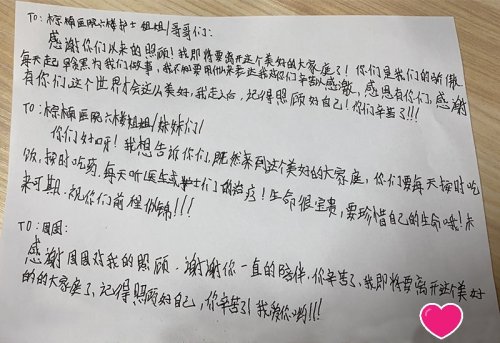 TO: 棕榈医院六楼护士姐姐/哥哥们:
感谢你们以来的照顾!我即将要离开这个美好的大家庭了!你们是我们的骄傲
每天起早贪黑为我们做事,我不知要用什么来表达我对你们辛苦以感激,感恩有你们,感谢
有你们,这个世界才会这么美好,我走以后,记得照顾好自己!你们辛苦了!!!
TO: 棕榈医院六楼姐姐/妹妹们/
你们好呀!我想告诉你们,既然来到这个美好的大家庭,你们要每天按时吃
饭,按时吃药,每天听医生或护士们的治疗!生命很宝贵,要珍惜自己的生命哦!未
来可期,祝你们前程似锦!!!
TO: 囡囡:
感谢囡囡对我的照顾,谢谢你一直的陪伴,你辛苦了,我即将要离开这个美好
的的大家庭了,记得照顾好自己,你辛苦了!我爱你哟!!!